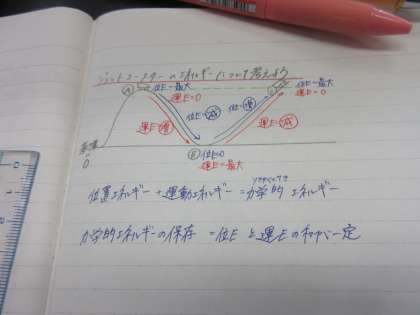 ジェットコースターのエネルギーについて考えよう
Ⓐ 位E=最大
運E=0
位E=最大
運E=0
運E=増 位E=減 位E=増 運E=減
基準
0
Ⓑ 位E=0
運E=最大
りきがくてき
位置エネルギー + 運動エネルギー = 力学的エネルギー
力学的エネルギーの保存 = 位Eと運Eの和が一定